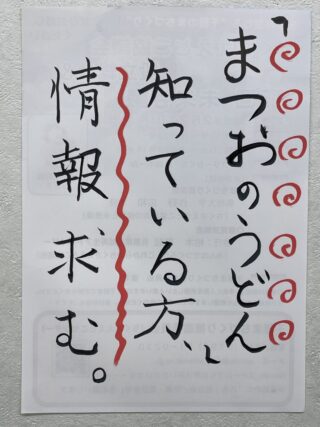 「まつおのうどん
知っている方、」
情報求む。